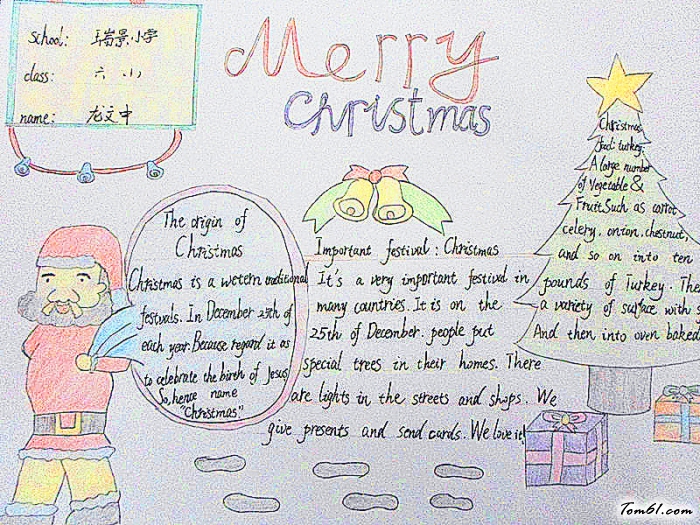 school: 瑞景小学
class: 六 小
name: 龙文中
Merry
Christmas
The origin of
Christmas
Christmas is a wetern traditional
festivals. In December 25th of
each year. Because regard it as
to celebrate the birth of Jesus
So, hence name
"Christmas."
Important festival: Christmas
It's a very important festival in
many countries. It is on the
25th of December. people put
special trees in their homes. There
are lights in the streets and shops. We
give presents and send cards. We love it!
Christmas
food: turkey.
A large number
of Vegetable &
Fruit. Such as carrot
celery. onion. chestnut,
and so on into ten
pounds of Turkey. The
a variety of surface with s
And then into oven baked
Tom61.com